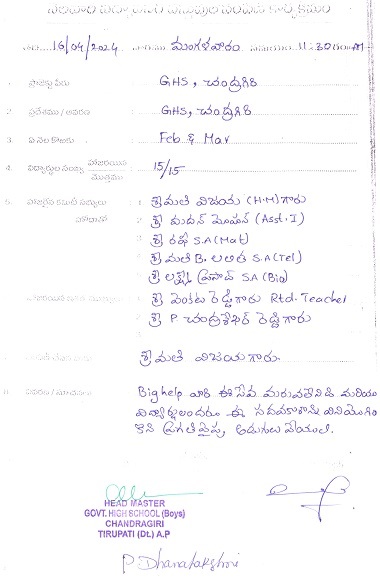 తేది 16/04/2024 వారము మంగళవారం సమయం 11:30 గం AM
1. ప్రాజెక్టు పేరు GHS, చంద్రగిరి
2. ప్రదేశము / ఆవరణ GHS, చంద్రగిరి
3. ఏ నెల కొఱకు Feb & Mar
4. విద్యార్థుల సంఖ్య హాజరయిన / మొత్తము 15/15
5. హాజరైన కమిటీ సభ్యులు 1 శ్రీమతి విజయ (H.M) గారు
హోదాతో 2 శ్రీ మదన్ మోహన్ (Asst. I)
3 శ్రీ రఫీ S.A (Mat)
4 శ్రీమతి B. లలిత S.A (Tel)
5 శ్రీ లక్ష్మీ ప్రసాద్ S.A (Bio)
శ్రీ వెంకట రెడ్డి గారు Rtd. Teacher
శ్రీ P చంద్రశేఖర్ రెడ్డి గారు
శ్రీమతి విజయ గారు.
Bighelp వారి ఈ సేవ మరువలేనిది మరియు
విద్యార్థులందరు ఈ సదవకాశాన్ని వినియోగించు
కొని ప్రగతివైపు అడుగులు వేయాలి.
HEAD MASTER
GOVT. HIGH SCHOOL (Boys)
CHANDRAGIRI
TIRUPATI (Dt.) A.P
P Dhanalakshmi